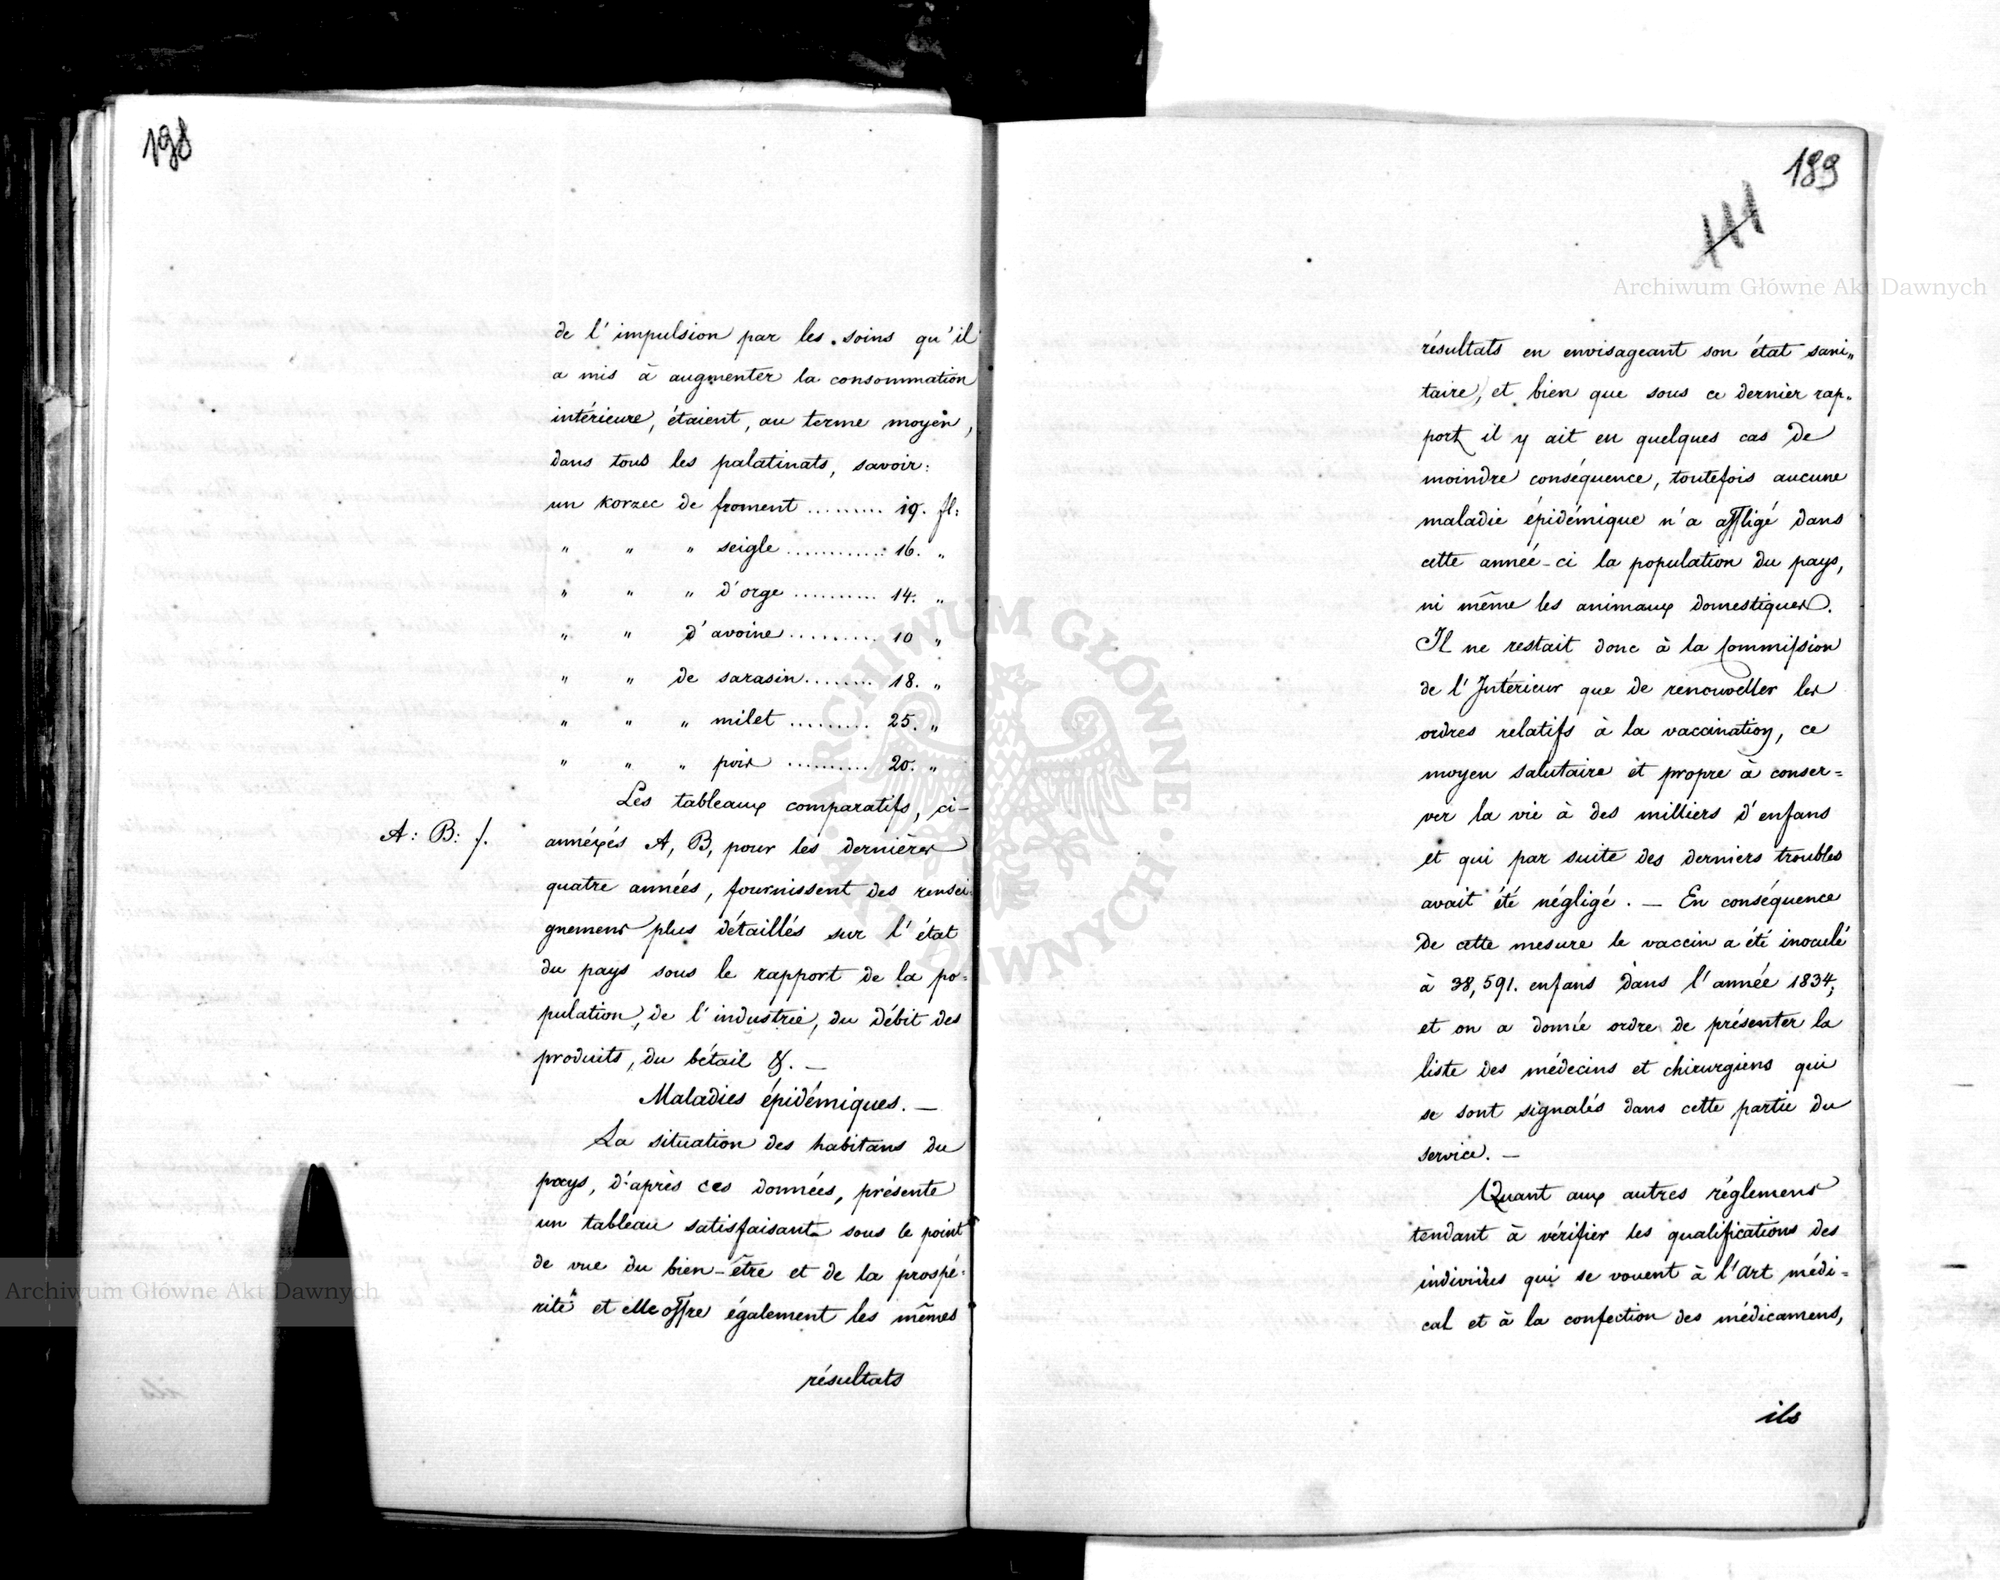 198
de l'impulsion par les soins qu'il
a mis à augmenter la consommation
intérieure, étaient, au terme moyen,
dans tous les palatinats, savoir:
un korzec de froment ......... 19. fl:
" " " seigle ............ 16. "
" " " d'orge .......... 14. "
" " d'avoine ......... 10 "
" " de sarasin ........ 18. "
" " " milet ......... 25. "
" " " pois .......... 20. "
Les tableaux comparatifs, ci-
A: B: /. annéxés A, B, pour les dernières
quatre années, fournissent des rensei-
gnemens plus détaillés sur l'état
du pays sous le rapport de la po-
pulation, de l'industrie, du débit des
produits, du bétail &. —
Maladies épidémiques. —
La situation des habitans du
pays, d'après ces données, présente
un tableau satisfaisant sous le point
de vue du bien-être et de la prospé-
rité et elle offre également les mêmes
résultats
199
111
résultats en envisageant son état sani„
taire, et bien que sous ce dernier rap„
port il y ait eu quelques cas de
moindre conséquence, toutefois aucune
maladie épidémique n'a affligé dans
cette année-ci la population du pays,
ni même les animaux domestiques.
Il ne restait donc à la Commission
de l'Intérieur que de renouveller les
ordres relatifs à la vaccination, ce
moyen salutaire et propre à conser=
ver la vie à des milliers d'enfans
et qui par suite des derniers troubles
avait été négligé. — En conséquence
de cette mesure le vaccin a été inoculé
à 38,591. enfans dans l'année 1834;
et on a donné ordre de présenter la
liste des médecins et chirurgiens qui
se sont signalés dans cette partie du
service. —
Quant aux autres réglemens
tendant à vérifier les qualifications des
individus qui se vouent à l'art médi=
cal et à la confection des médicamens,
ils
Archiwum Główne Akt Dawnych
Archiwum Główne Akt Dawnych
ARCHIWUM GŁÓWNE AKT DAWNYCH